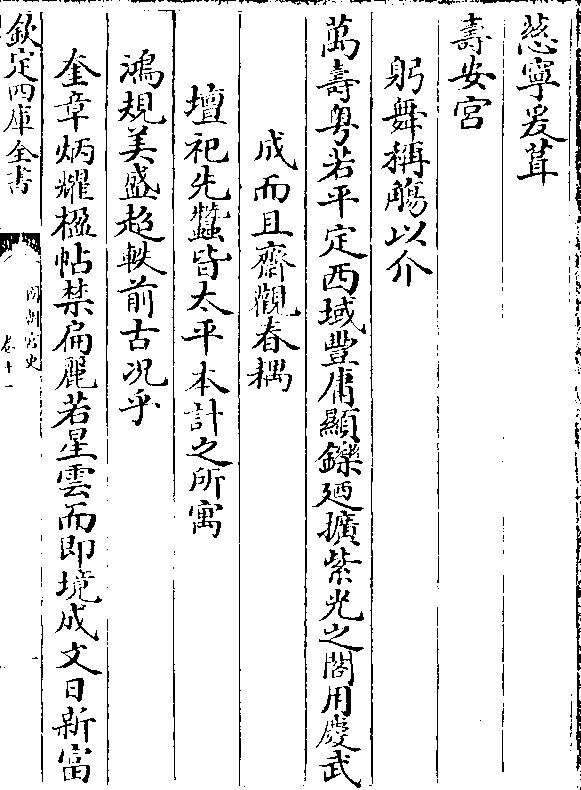 慈寧爰葺
壽安宮
躬舞稱觴以介
萬壽粤若平定西域豐庸顯鑠廼擴紫光之閣用慶武
成而且齋觀春耦
壇祀先蠶皆太平本計之所寓
鴻規美盛超軼前古况乎
奎章炳耀楹帖禁扁麗若星雲而即境成文日新富
欽定四庫全書
國朝宮史
卷十一